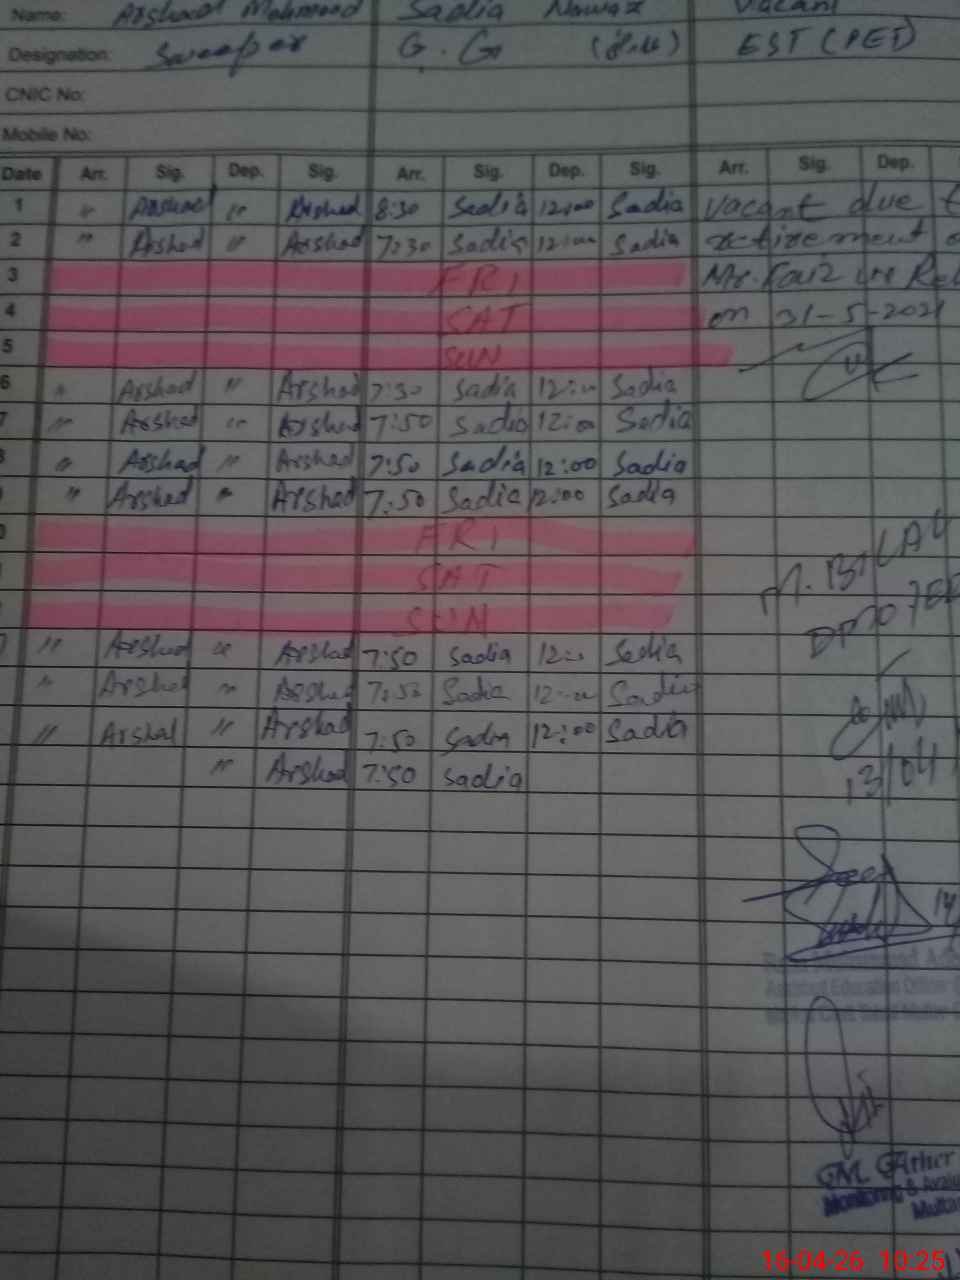 Name: Arshad Mehmood Sadia Nawaz Vacant
Designation: Sweeper EST (PET)
CNIC No:
Mobile No:
Date Arr. Sig. Dep. Sig. Arr. Sig. Dep. Sig. Arr. Sig. Dep.
1 " Arshad " Arshad 8:30 Sadia 12:00 Sadia Vacant due
2 " Arshad " Arshad 7:30 Sadia 12:00 Sadia retirement
3 FRI Mr.
4 SAT on 31-5-2021
5 SUN
6 " Arshad " Arshad 7:30 Sadia 12:00 Sadia
7 " Arshad " Arshad 7:50 Sadia 12:00 Sadia
" Arshad " Arshad 7:50 Sadia 12:00 Sadia
" Arshad " Arshad 7:50 Sadia 12:00 Sadia
FRI
SAT
SUN
M. BILAL
" Arshad " Arshad 7:50 Sadia 12:00 Sadia
" Arshad " Arshad 7:50 Sadia 12:00 Sadia
" Arshad " Arshad 7:50 Sadia 12:00 Sadia
" Arshad 7:50 Sadia
13/04
14
Assistant Education Officer
16-04-26 10:25